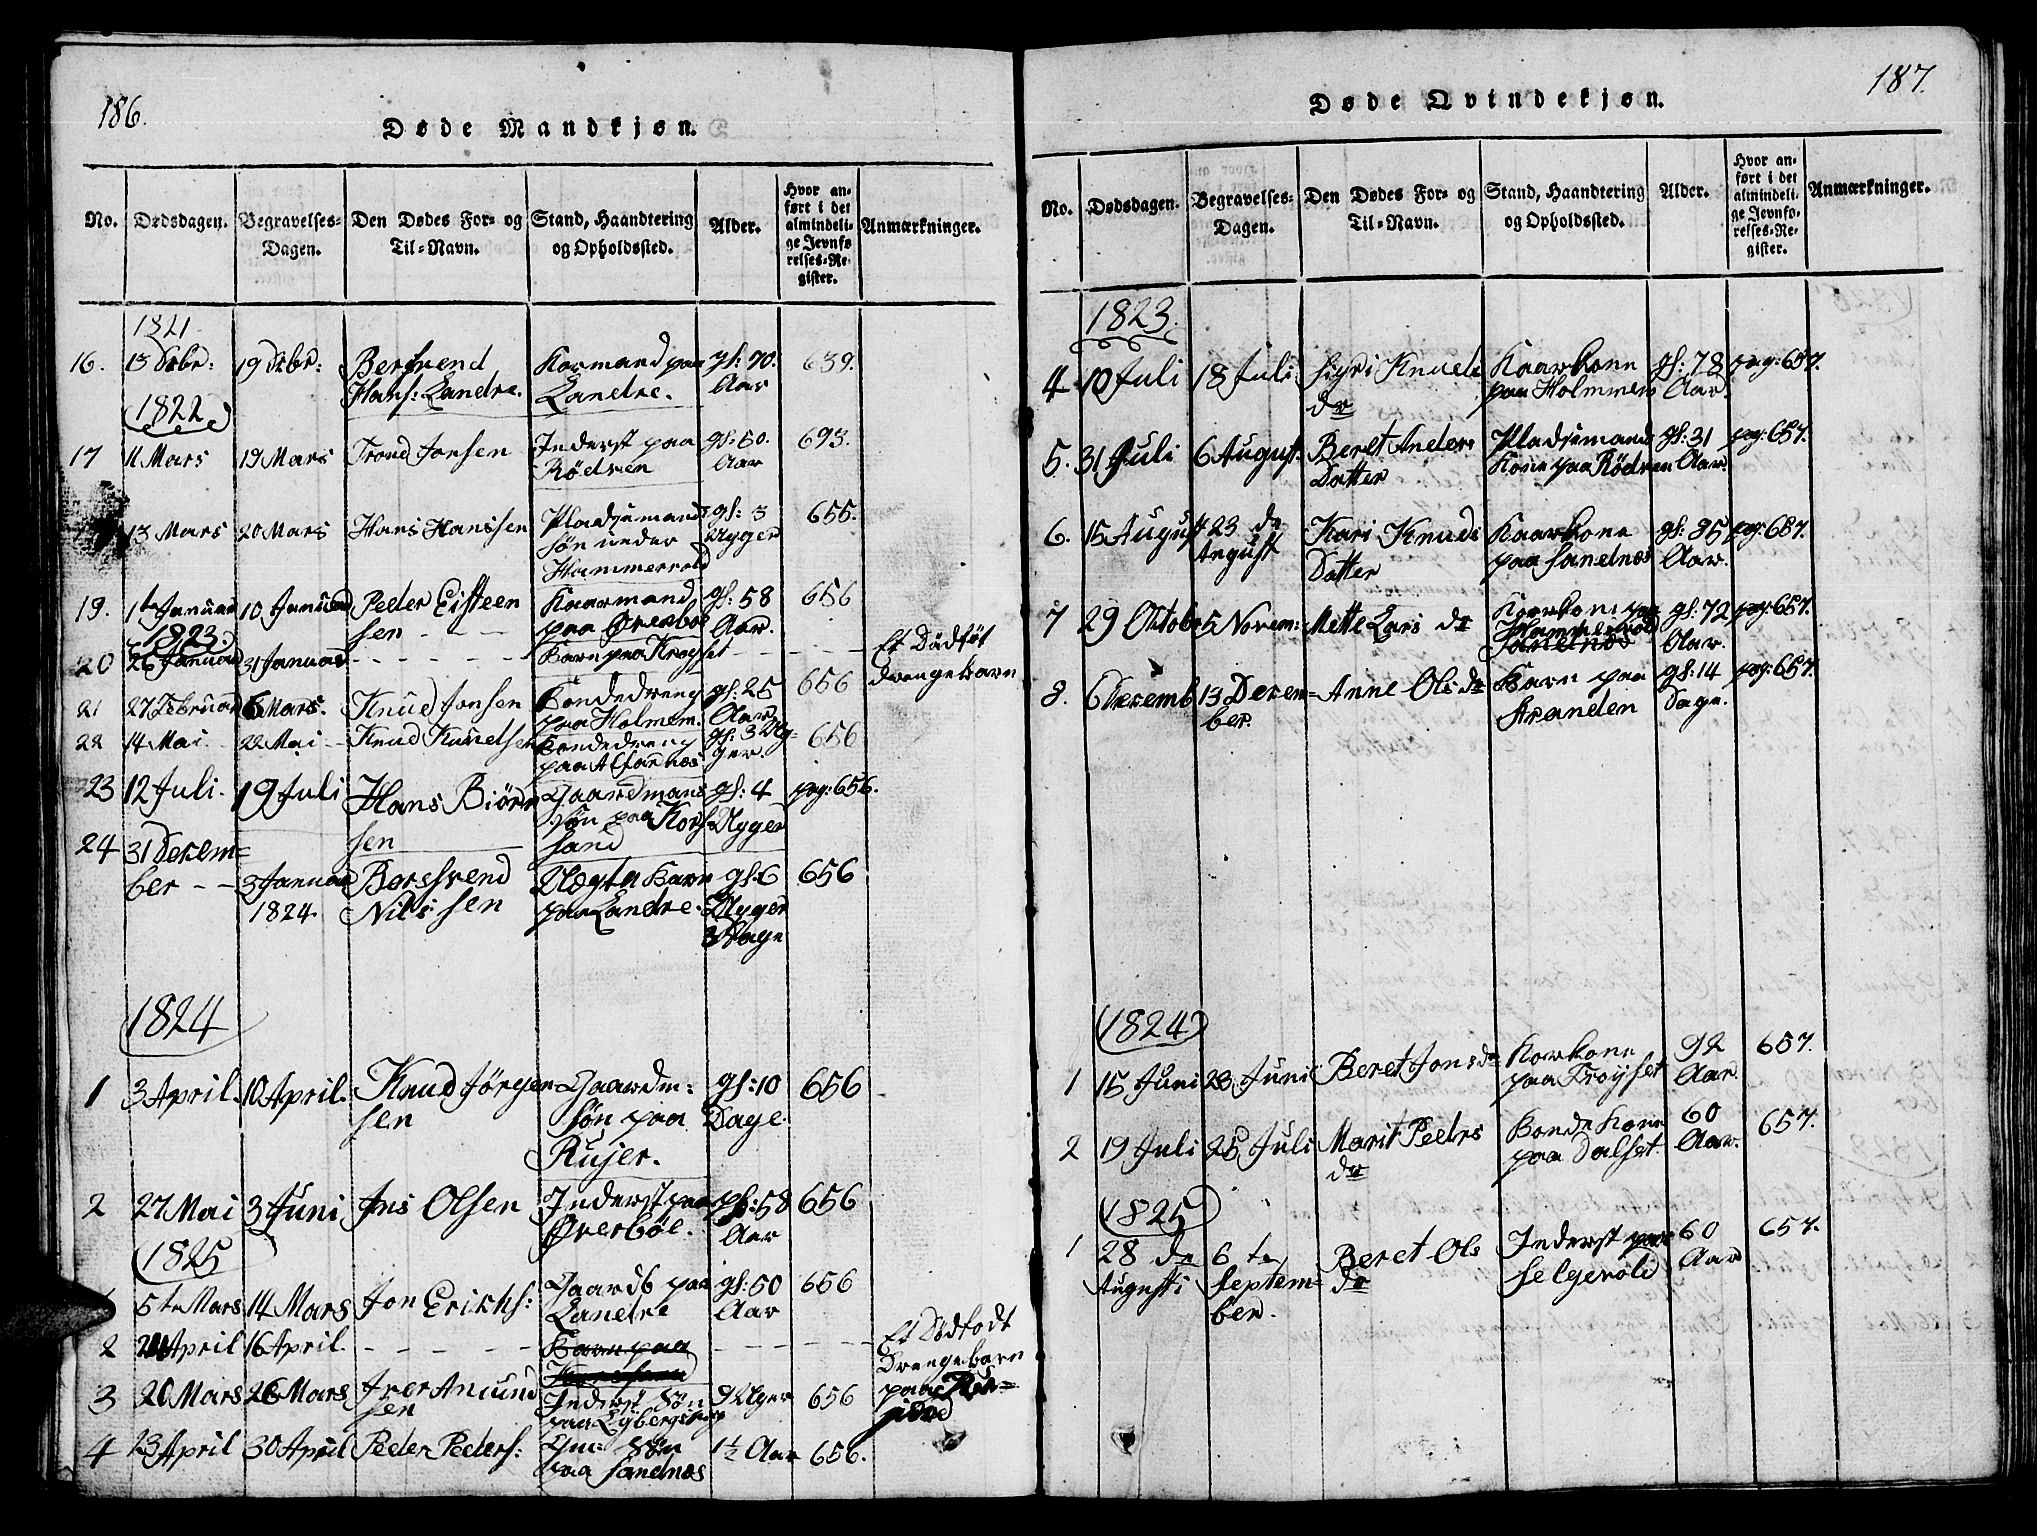 186.
Døde Mandkjøn.
No. Dødsdagen. Begravelses-Dagen. Den Dødes For- og Til-Navn. Stand, Haandtering og Opholdssted. Alder. Hvor anført i det almindelige Jevnførelses-Register. Anmærkninger.
1821
16. 13 Dcbr: 19 Dcbr: Bersvend Kormand paa gl: 70. 639.
Hans: Landre. Landre. Aar
1822
17 11 Mars 19 Mars Trond Jonsen Inderst paa gl: 60. 693.
Rødsen Aar
13 Mars 20 Mars Hans Hanssen Pladsemands gl: 3 655.
søn under Uger
Hammervold
19. 1te Januar 10 Januar Peder Eisteen Kaarmand gl: 58 656
sen paa Øvesboe Aar.
1823
20 26 Januar 31 Januar Barn paa Krogset Et Dødføt
drengebarn
21 27 Februar 6 Mars. Knud Jonsen Bondedreng gl: 25 656
paa Holmem. Aar
22 14 Mai 22 Mai Knud Knudsen Bondedreng gl: 3 Uy- 656
paa Alfarnes ger.
23 12 Juli. 19 Juli Hans Biørn Gaardmans gl: 4 pag: 656.
sen søn paa Kors Uger
sand
24 31 Decem=
ber 3 Januar Beresvend Uægta Barn gl: 6 656
1824. Nils sen paa Landre. Uger
3 Dage
1824
1 3 April. 10 April. Knud Jørgen Gaardm: gl: 10 656
sen søn paa Dage.
Rujer.
2 27 Mai 3 Juni Jns Olsen Inderst paa gl: 58 656
Øverbøe. Aar
1825
5te Mars 14 Mars Jon Erichs: Gaardb paa gl: 50 656
Landre Aar
2 April 16 April. Barn paa Et Dødfødt
Drengebarn
paa
3 20 Mars 26 Mars Iver Amund Inderst Søn 9 Uger 656
sen paa
4 23 April 30 April Peder Peders: Gm: Søn 1½ Aar 656.
paa Sandnes
187.
Døde Qvindekjøn.
No. Dødsdagen. Begravelses-Dagen. Den Dødes For- og Til-Navn. Stand, Haandtering og Opholdssted. Alder. Hvor anført i det almindelige Jevnførelses-Register. Anmærkninger.
1823.
4 10 Juli 18 Juli Sigri Knuds Kaarkone gl: 78 pag: 657.
dr paa Holmmen Aar.
5. 31 Juli 6 August. Beret Anders Pladsemand gl: 31 pag: 657.
Datter Kone paa Rødven Aar.
6. 15 August 23 de Kari Knuds Kaarkone gl: 85 pag: 657.
August Datter paa Sandnes Aar.
7 29 Oktober 5 Novem: Mette Lars dr Kaarkone paa gl: 72 pag: 657.
Hammervold Aar.
Sandnes
8. 6 Decemb 13 Decem= Anne Ols dr Barn paa gl: 14 pag: 657.
ber. Stranden Dage.
1824
1 15 Juni 23 Juni Beret Jonsdr Korkone 92 657.
paa Frøyset Aar.
2 19 Juli 25 Juli Marit Peders Bonde Kone 60 657.
dr paa Dalset. Aar.
1825
1 28 de 6 te Beret Ols Inderst paa 60 657.
Augusti Septem= dr Selgevold Aar
ber.